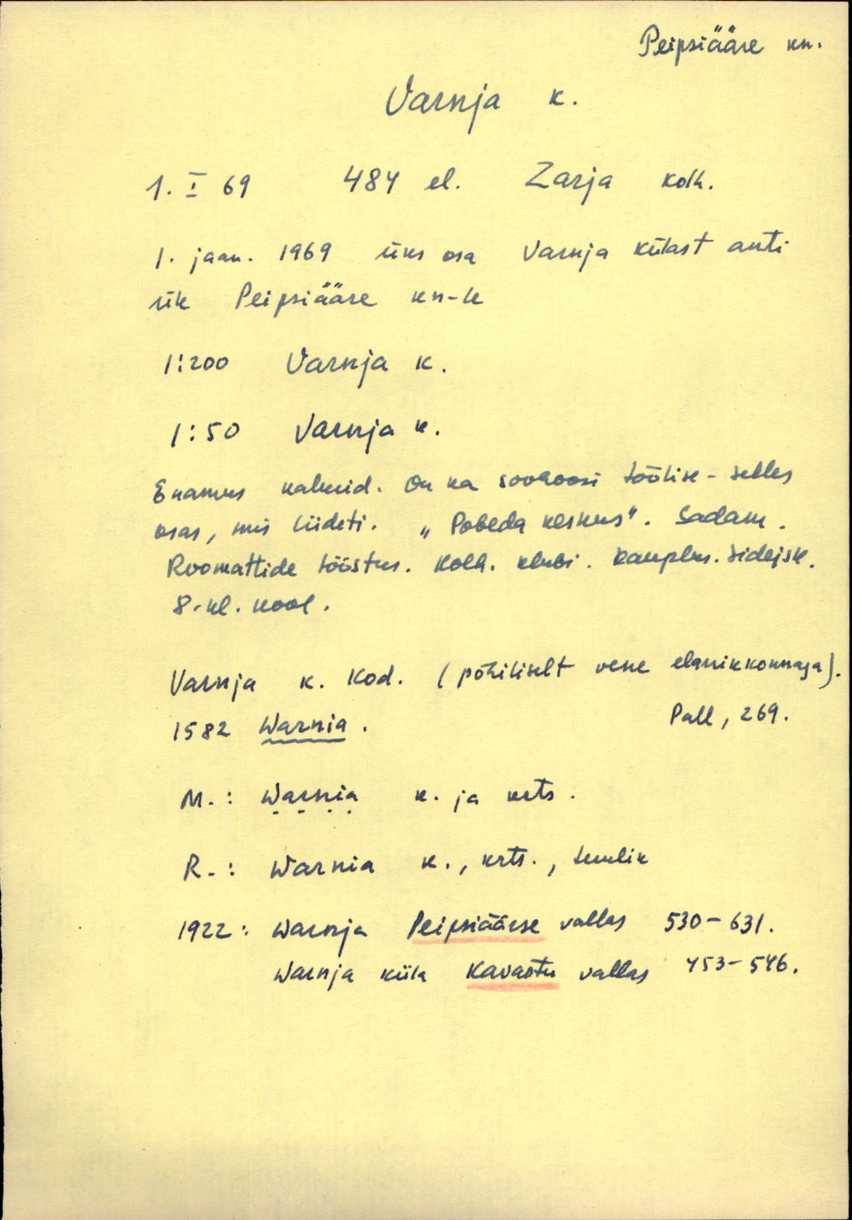 Peipsiääre kn.
Varnja k.
1. I 69 484 el. Zarja kolh.
1. jaan. 1969 üks osa Varnja külast anti
üle Peipsiääre kn-le
1:200 Varnja k.
1:50 Varnja k.
Enamus kalurid. On ka sovhoosi töölisi - selles
osas, mis liideti. „Pobeda keskus". Sadam.
Roomattide tööstus. Kolh. klubi. Kauplus. Sidejsk.
8-kl. kool.
Varnja k. Kod. (põhiliselt vene elanikkonnaga).
1582 Warnia. Pall, 269.
M.: Warnia k. ja krts.
R.: Warnia k., krts., tuulik
1922: Warnja Peipsiäärse vallas 530-631.
Warnja küla Kavastu vallas 453-546.